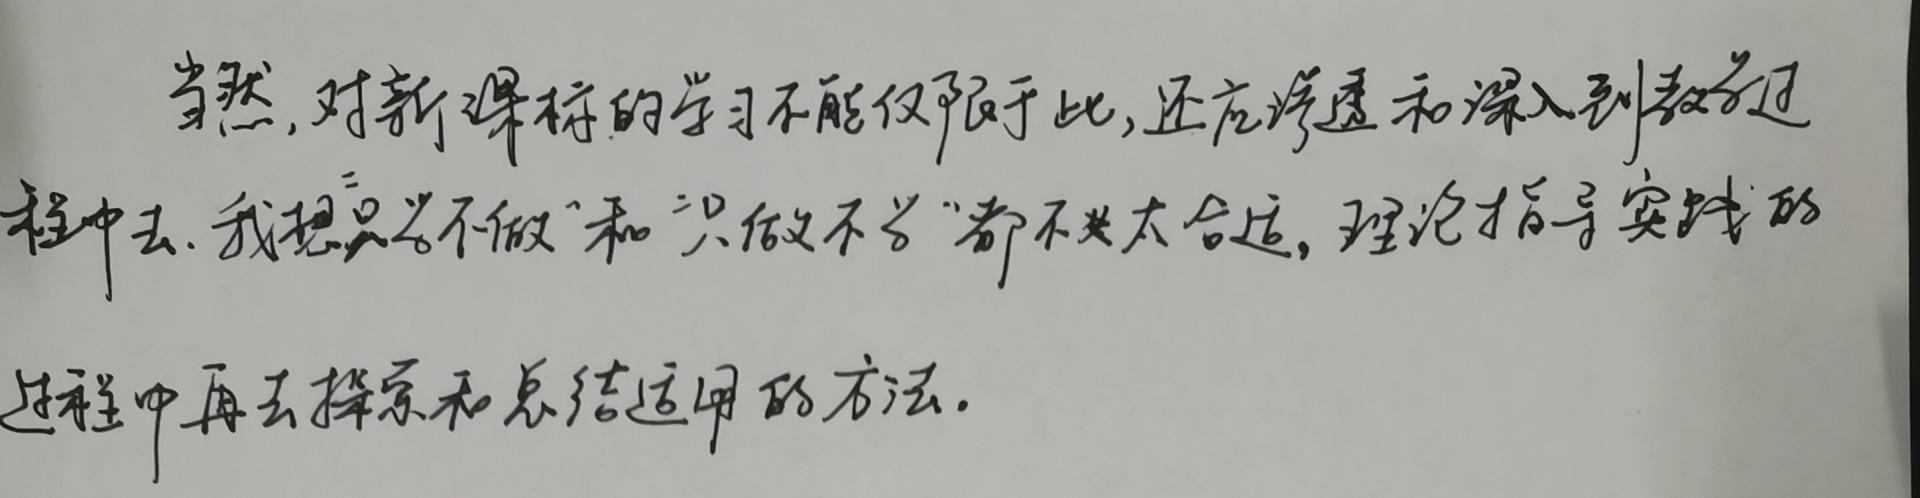 当然,对新课标的学习不能仅限于此,还应渗透和深入到教学过
程中去.我想"只学不做"和"只做不学"都不太合适,理论指导实践的
过程中再去探索和总结适用的方法.